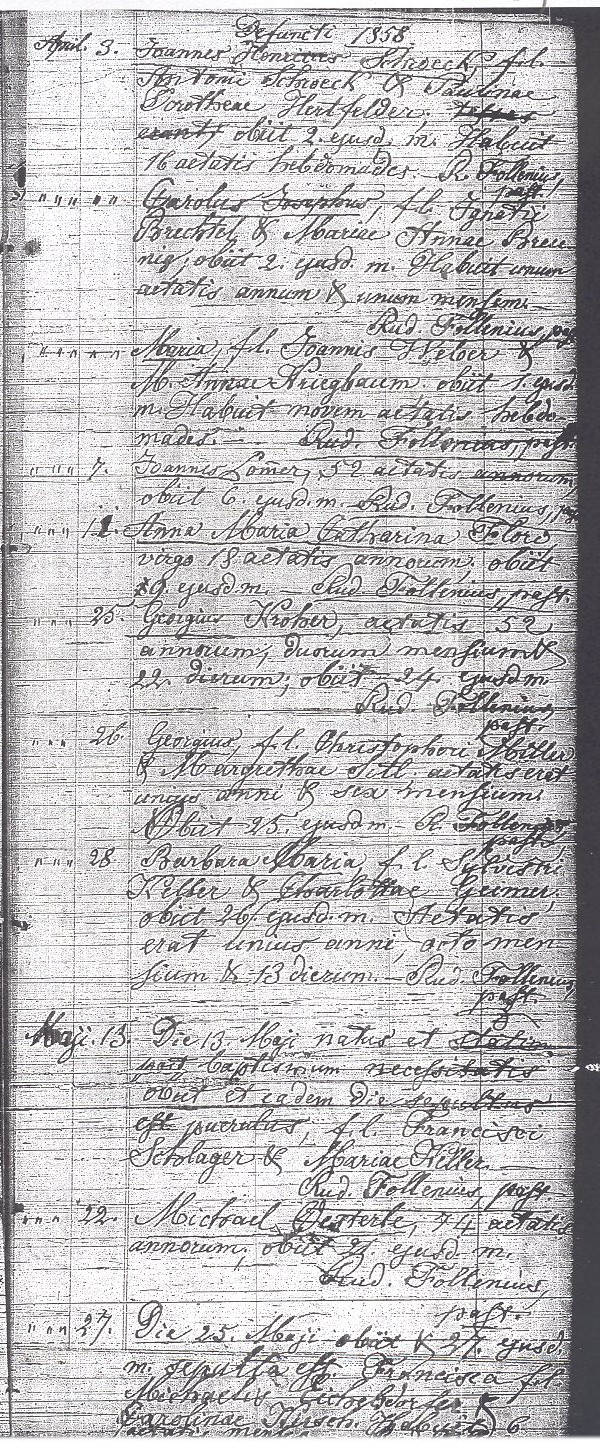 Defuncti 1858
April. 3. Joannes Henricus Schroeck, f. l.
Antonii Schroeck & Paulinae
Dorotheae Hertfelder.
erant, obiit 2. ejusd. m. Habuit
16 aetatis hebdomades. R. Follenius, past.
" " " " Carolus Josephus, f. l. Ignatii
Brechtel & Mariae Annae Breu-
nig; obiit 2. ejusd. m. Habuit unum
aetatis annum & unum mensem.
Rud. Follenius, past.
" " " " Maria, f. l. Joannis Weber &
M. Annae Kriegbaum. obiit 1. ejusd.
m. Habuit novem aetatis hebdo-
mades. — Rud. Follenius, past.
" " " 7. Joannes Lomer, 52 aetatis annorum,
obiit 6. ejusd. m. Rud. Follenius, past.
" " " 11. Anna Maria Catharina Flore,
virgo 18 aetatis annorum, obiit
9. ejusd m. — Rud Follenius, past.
" " " 25. Georgius Kroher, aetatis 52
annorum, duorum mensium &
22 dierum; obiit 24. ejusd m.
Rud. Follenius,
past.
" " " 26. Georgius, f. l. Christophori Miller
& Margrethae Sitl. aetatis erat
unius anni & sex mensium.
Obiit 25. ejusd m. — R. Follenius,
past.
" " " 28. Barbara Maria f. l. Sylvestri
Keller & Charlottae Geimer.
obiit 26. ejusd. m. Aetatis
erat unius anni, octo men
sium & 13 dierum. — Rud. Follenius,
past.
Maji. 13. Die 13. Maji natus et statim
post baptismum necessitatis
obiit et eadem die sepultus
est puerulus, f. l. Francisci
Schlager & Mariae Hiller.
Rud. Follenius, past.
" " " 22. Michael Oesterle, 74 aetatis
annorum, obiit 21. ejusd. m.
Rud. Follenius,
past.
" " " 27. Die 25. Maji obiit & 27. ejusd.
m. sepulta est Francisca f. l.
Michaelis Eichelsdörfer &
Carolinae Hirsch. Habuit 6
aetatis